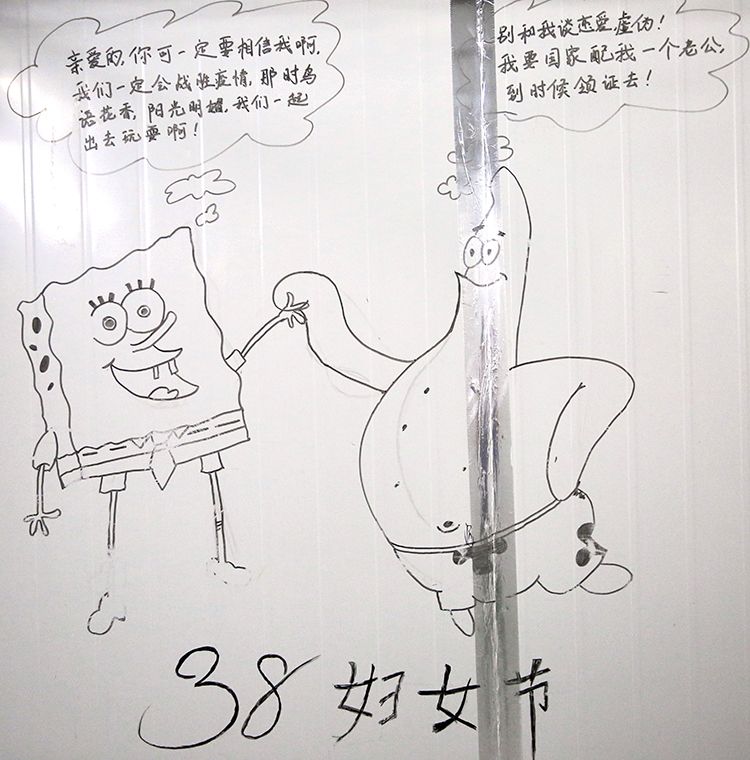 亲爱的,你可一定要相信我啊,
我们一定会战胜疫情,那时鸟
语花香,阳光明媚,我们一起
出去玩耍啊!
别和我谈恋爱,虚伪!
我要国家配我一个老公,
到时候领证去!
38 妇女节